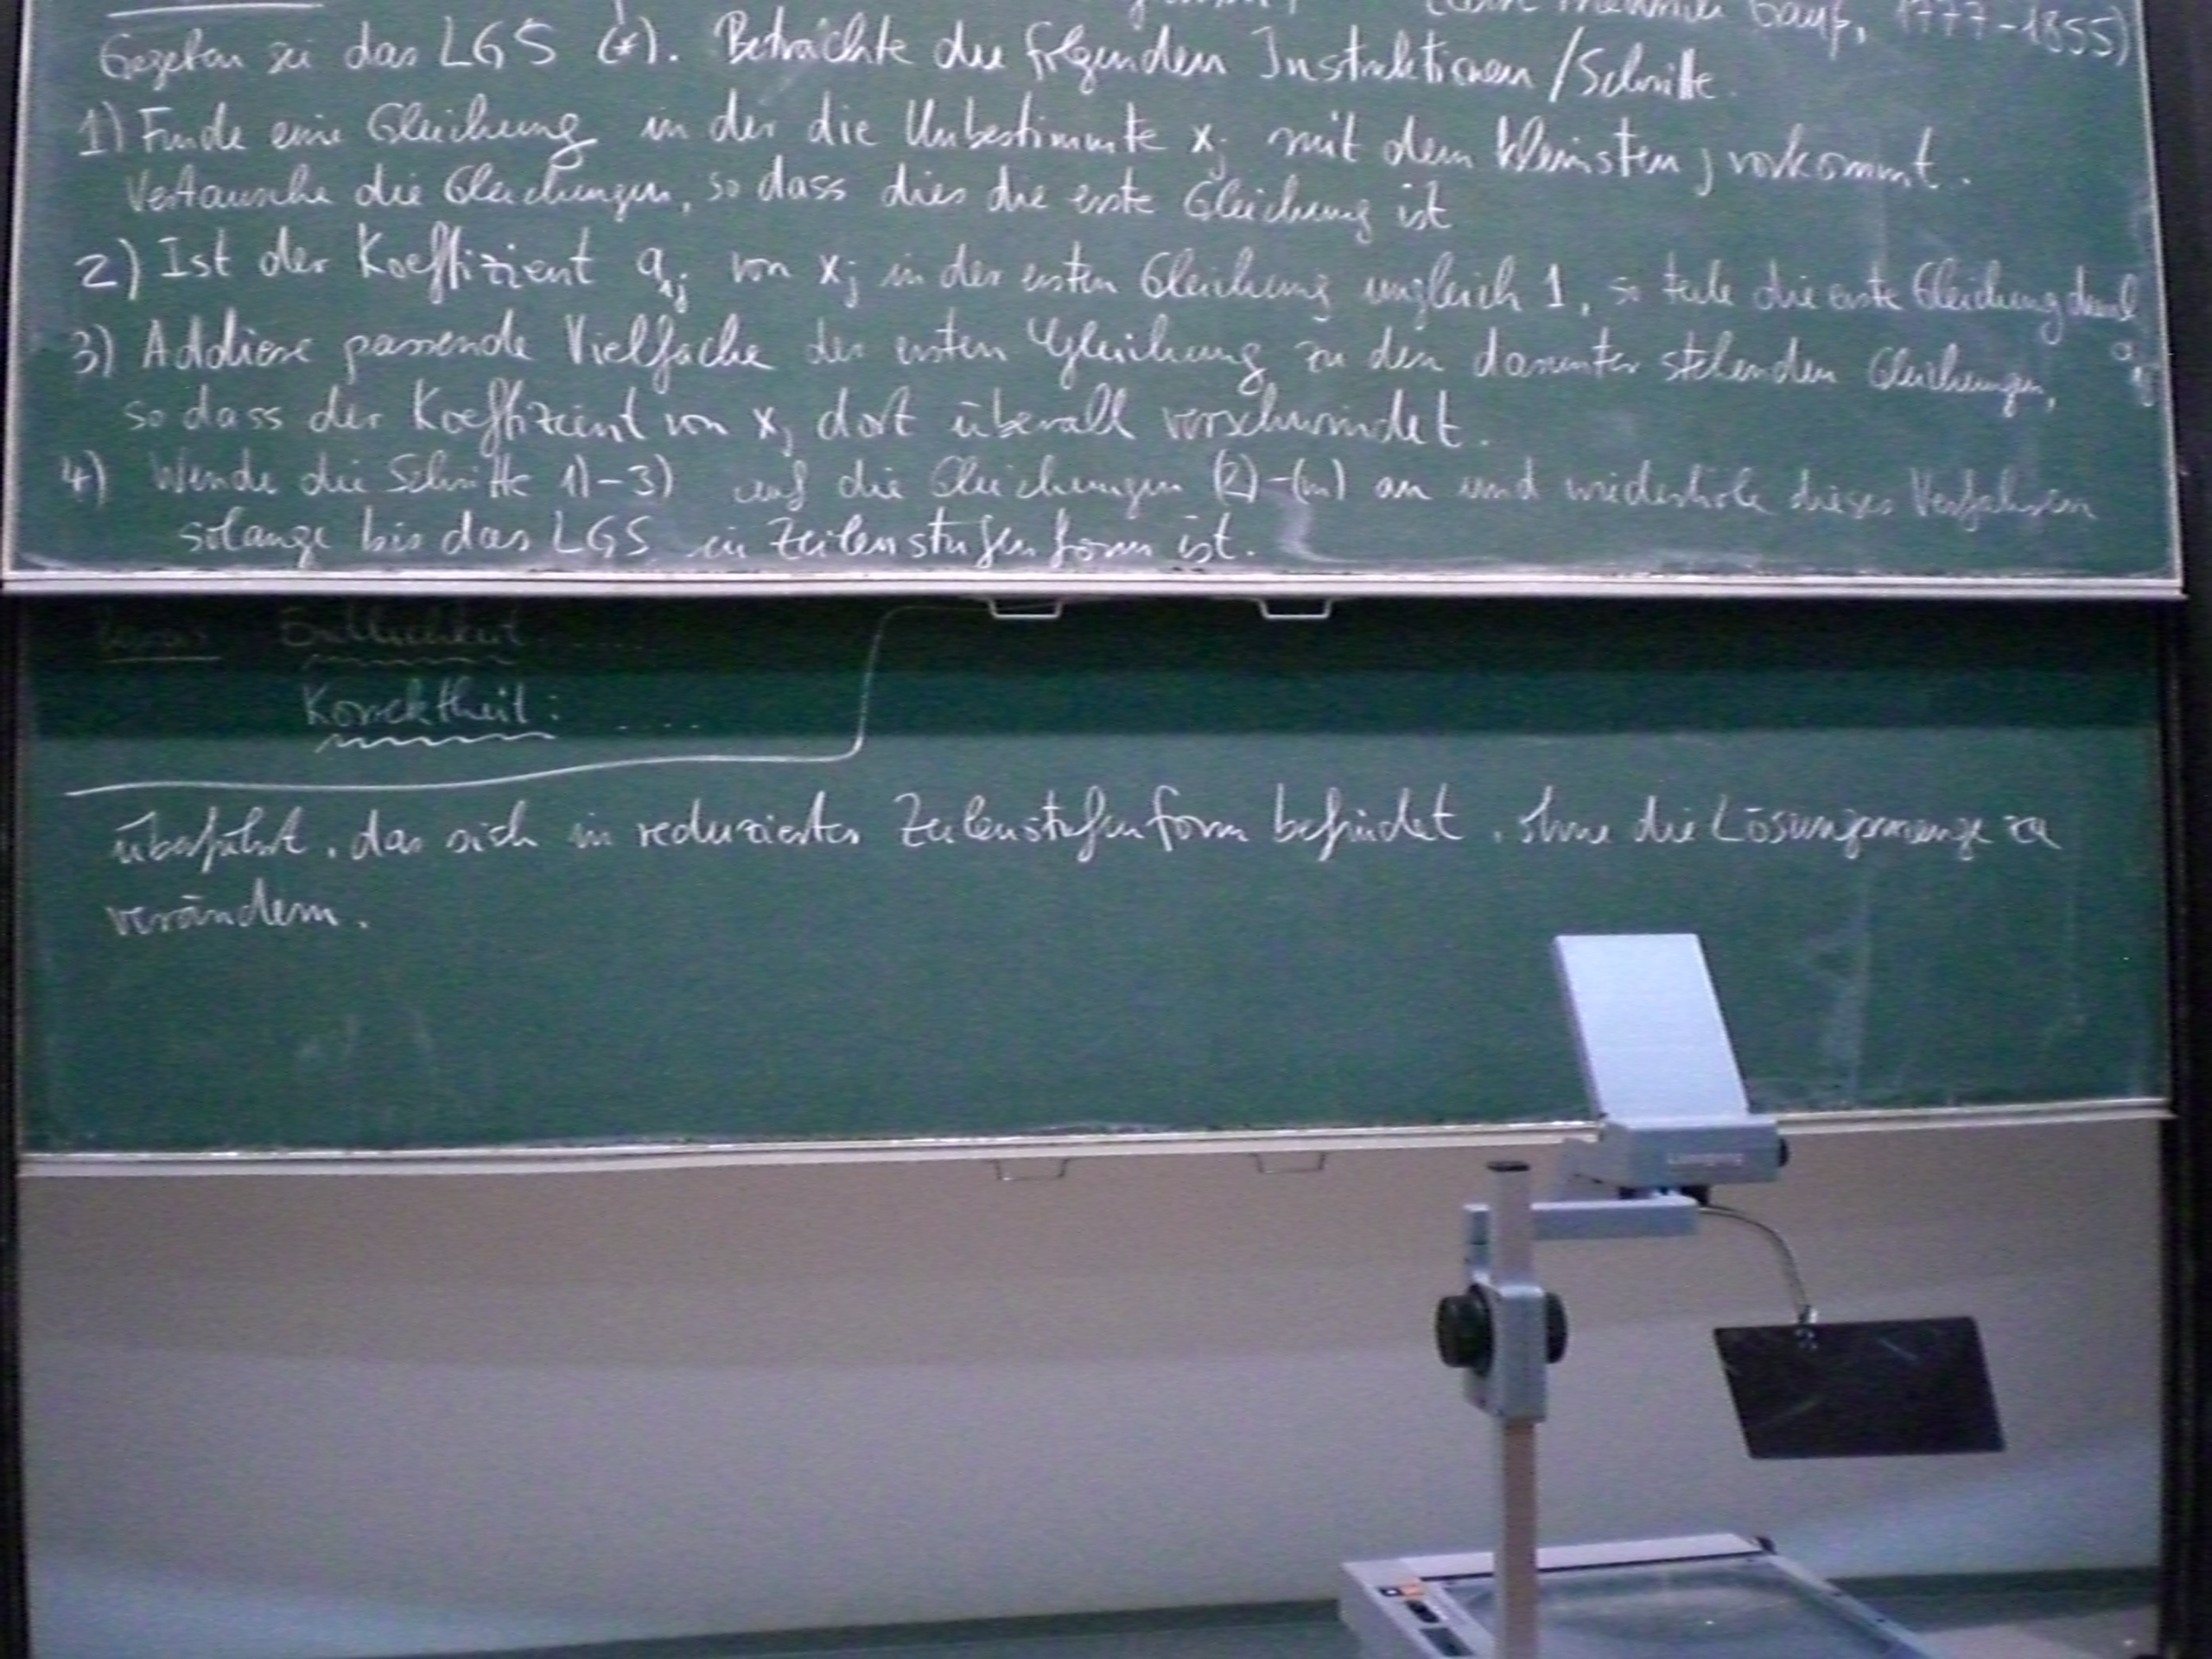 (Carl Friedrich Gauß, 1777-1855)
Gegeben sei das LGS (*). Betrachte die folgenden Instruktionen/Schritte.
1) Finde eine Gleichung in der die Unbestimmte xj mit dem kleinsten j vorkommt.
Vertausche die Gleichungen, so dass dies die erste Gleichung ist
2) Ist der Koeffizient a1j von xj in der ersten Gleichung ungleich 1, so teile die erste Gleichung durch a1j
3) Addiere passende Vielfache der ersten Gleichung zu den darunter stehenden Gleichungen,
so dass der Koeffizient von xj dort überall verschwindet.
4) Wende die Schritte 1)-3) auf die Gleichungen (2)-(m) an und wiederhole dieses Verfahren
solange bis das LGS in Zeilenstufenform ist.
Beweis Endlichkeit ......
Korrektheit: ....
überführt, das sich in reduzierter Zeilenstufenform befindet, ohne die Lösungsmenge zu
verändern.